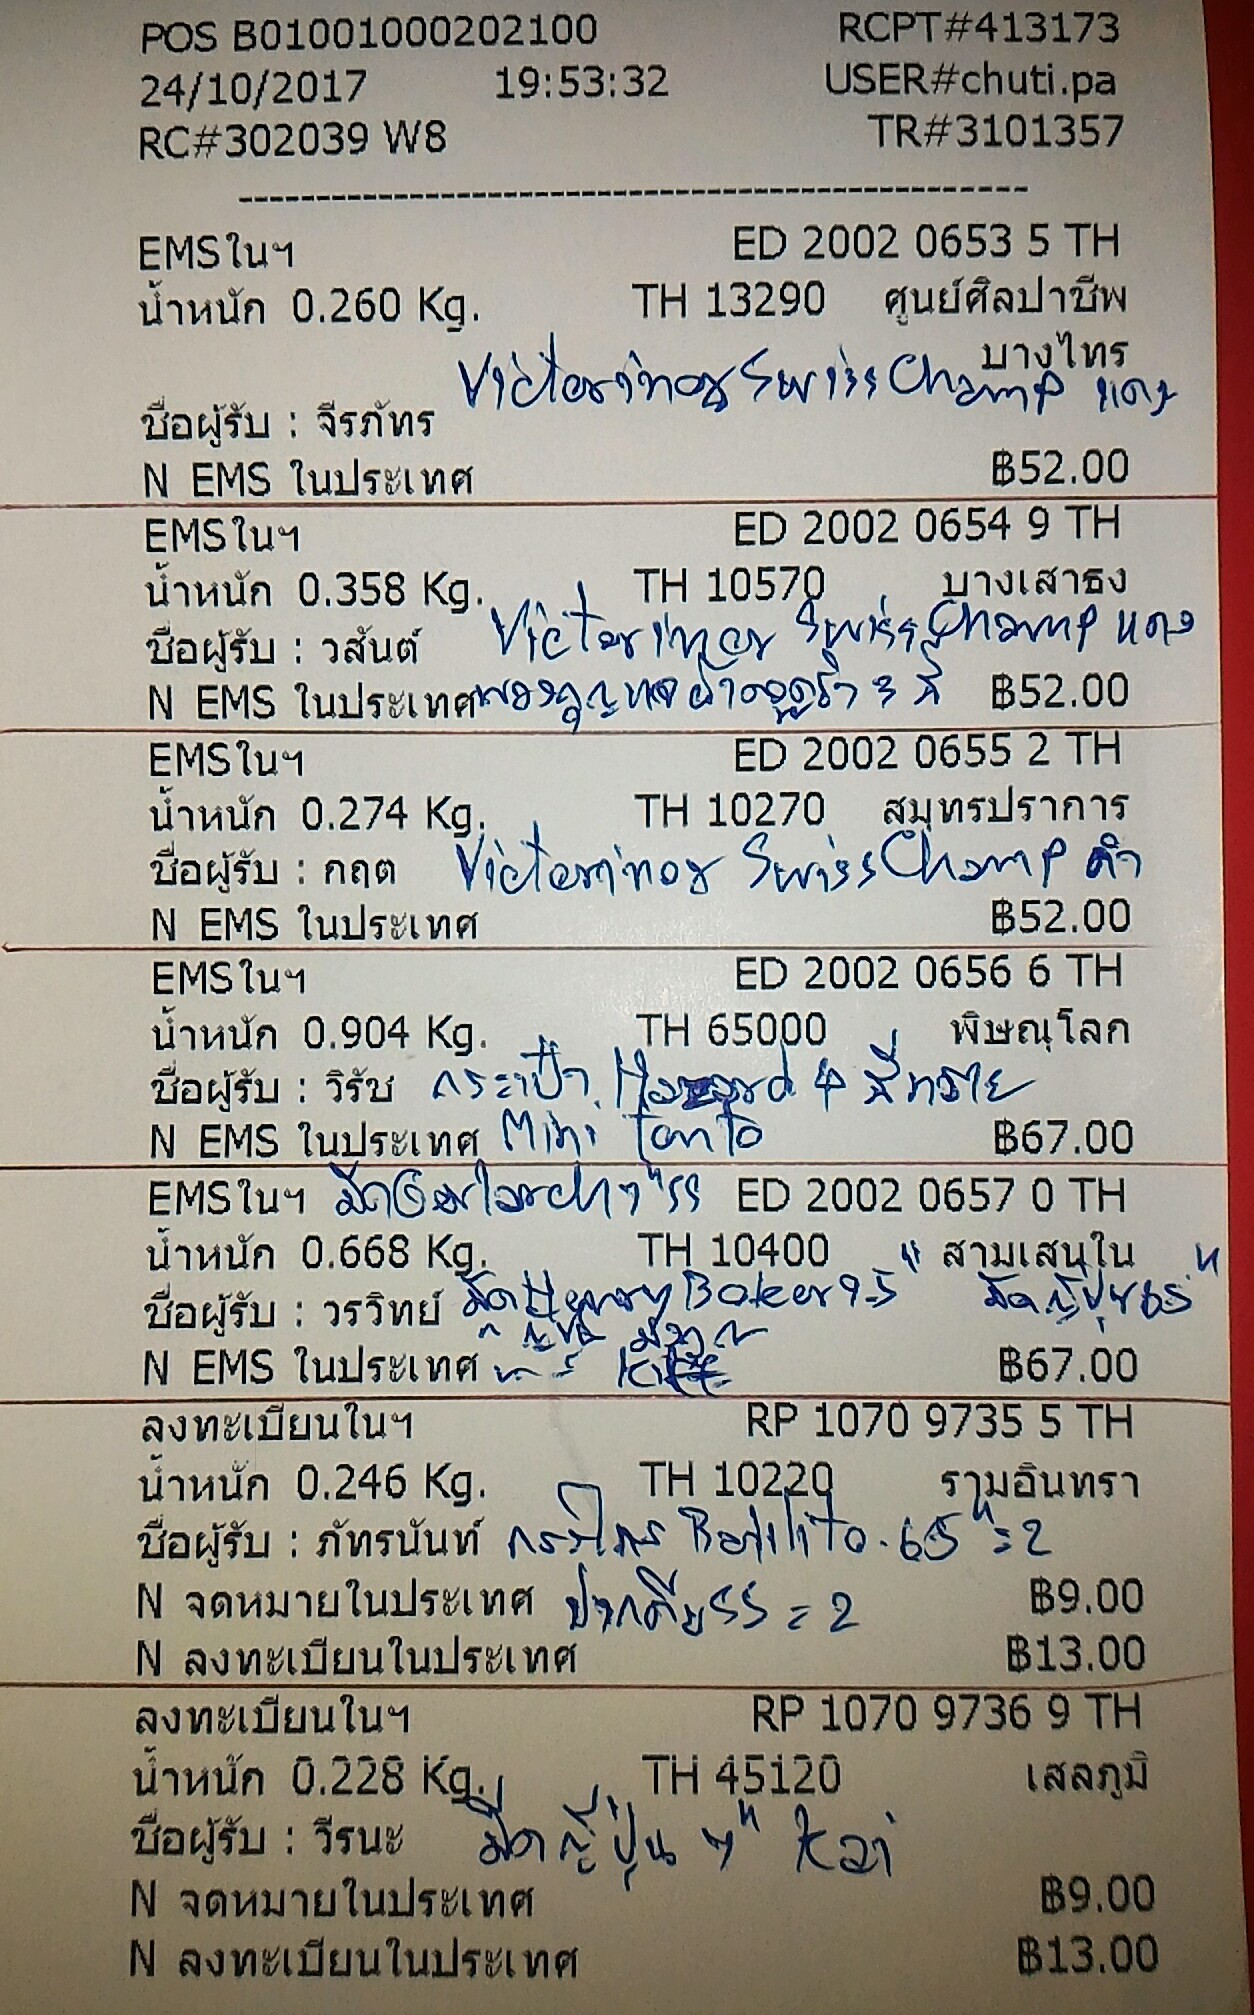 POS B01001000202100 RCPT#413173
24/10/2017 19:53:32 USER#chuti.pa
RC#302039 W8 TR#3101357
------------------------------------------------
EMSในฯ ED 2002 0653 5 TH
น้ำหนัก 0.260 Kg. TH 13290 ศูนย์ศิลปาชีพ
บางไทร
Victorinox SwissChamp แดง
ชื่อผู้รับ : จีรภัทร
N EMS ในประเทศ ฿52.00
EMSในฯ ED 2002 0654 9 TH
น้ำหนัก 0.358 Kg. TH 10570 บางเสาธง
ชื่อผู้รับ : วสันต์ Victorinox SwissChamp แดง
N EMS ในประเทศ 3 สี ฿52.00
EMSในฯ ED 2002 0655 2 TH
น้ำหนัก 0.274 Kg. TH 10270 สมุทรปราการ
ชื่อผู้รับ : กฤต Victorinox SwissChamp ดำ
N EMS ในประเทศ ฿52.00
EMSในฯ ED 2002 0656 6 TH
น้ำหนัก 0.904 Kg. TH 65000 พิษณุโลก
ชื่อผู้รับ : วิรัช กระเป๋า Hazard 4 สีทราย
N EMS ในประเทศ Mini Tanto ฿67.00
EMSในฯ ED 2002 0657 0 TH
น้ำหนัก 0.668 Kg. TH 10400 สามเสนใน
ชื่อผู้รับ : วรวิทย์ มีด Henry Baker 9.5" มีดญี่ปุ่น 6.5"
N EMS ในประเทศ ฿67.00
ลงทะเบียนในฯ RP 1070 9735 5 TH
น้ำหนัก 0.246 Kg. TH 10220 รามอินทรา
ชื่อผู้รับ : ภัทรนันท์ กรรไกร 6.5" = 2
N จดหมายในประเทศ = 2 ฿9.00
N ลงทะเบียนในประเทศ ฿13.00
ลงทะเบียนในฯ RP 1070 9736 9 TH
น้ำหนัก 0.228 Kg. TH 45120 เสลภูมิ
ชื่อผู้รับ : วีรนะ มีดญี่ปุ่น 7" Kai
N จดหมายในประเทศ ฿9.00
N ลงทะเบียนในประเทศ ฿13.00